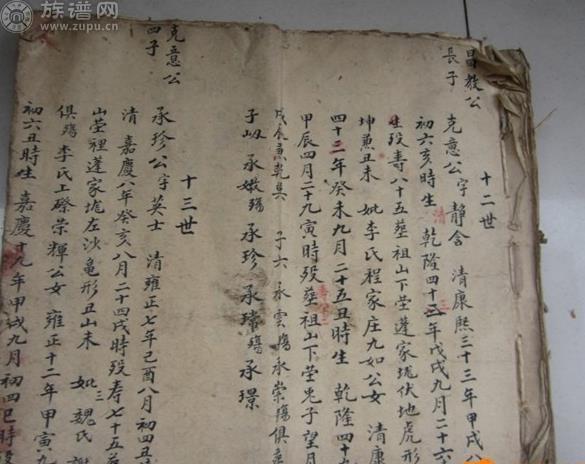 族谱网
www.zupu.cn
昌教公
長子
十二世
克意公字靜含 清康熙三十三年甲戌八
初六亥時生 乾隆四十三年戊戌九月二十六
清
三
生殁壽八十五塟祖山下塋蓬家垅伏地虎形
坤兼丑未 妣李氏程家庄九如公女 清康
四十二年癸未九月二十五丑時生 乾隆四十
甲辰四月二十九寅時殁塟祖山下塋兎子望月
戊辰兼乾巽 子六 承雲殤 承崇殤俱
子㘭 承嫩殤 承珍 承璫殤 承璟
克意公
四子
十三世
承珍公字英士 清雍正七年己酉八月初四丑
清 嘉慶八年癸亥八月二十四戌時殁壽七十五
山塋裡蓬家垅左沙龜形丑山未 妣魏氏
三
俱殤 李氏上磜崇輝公女 雍正十二年甲寅九
初六丑時生 嘉慶十九年甲戌九月初四巳時